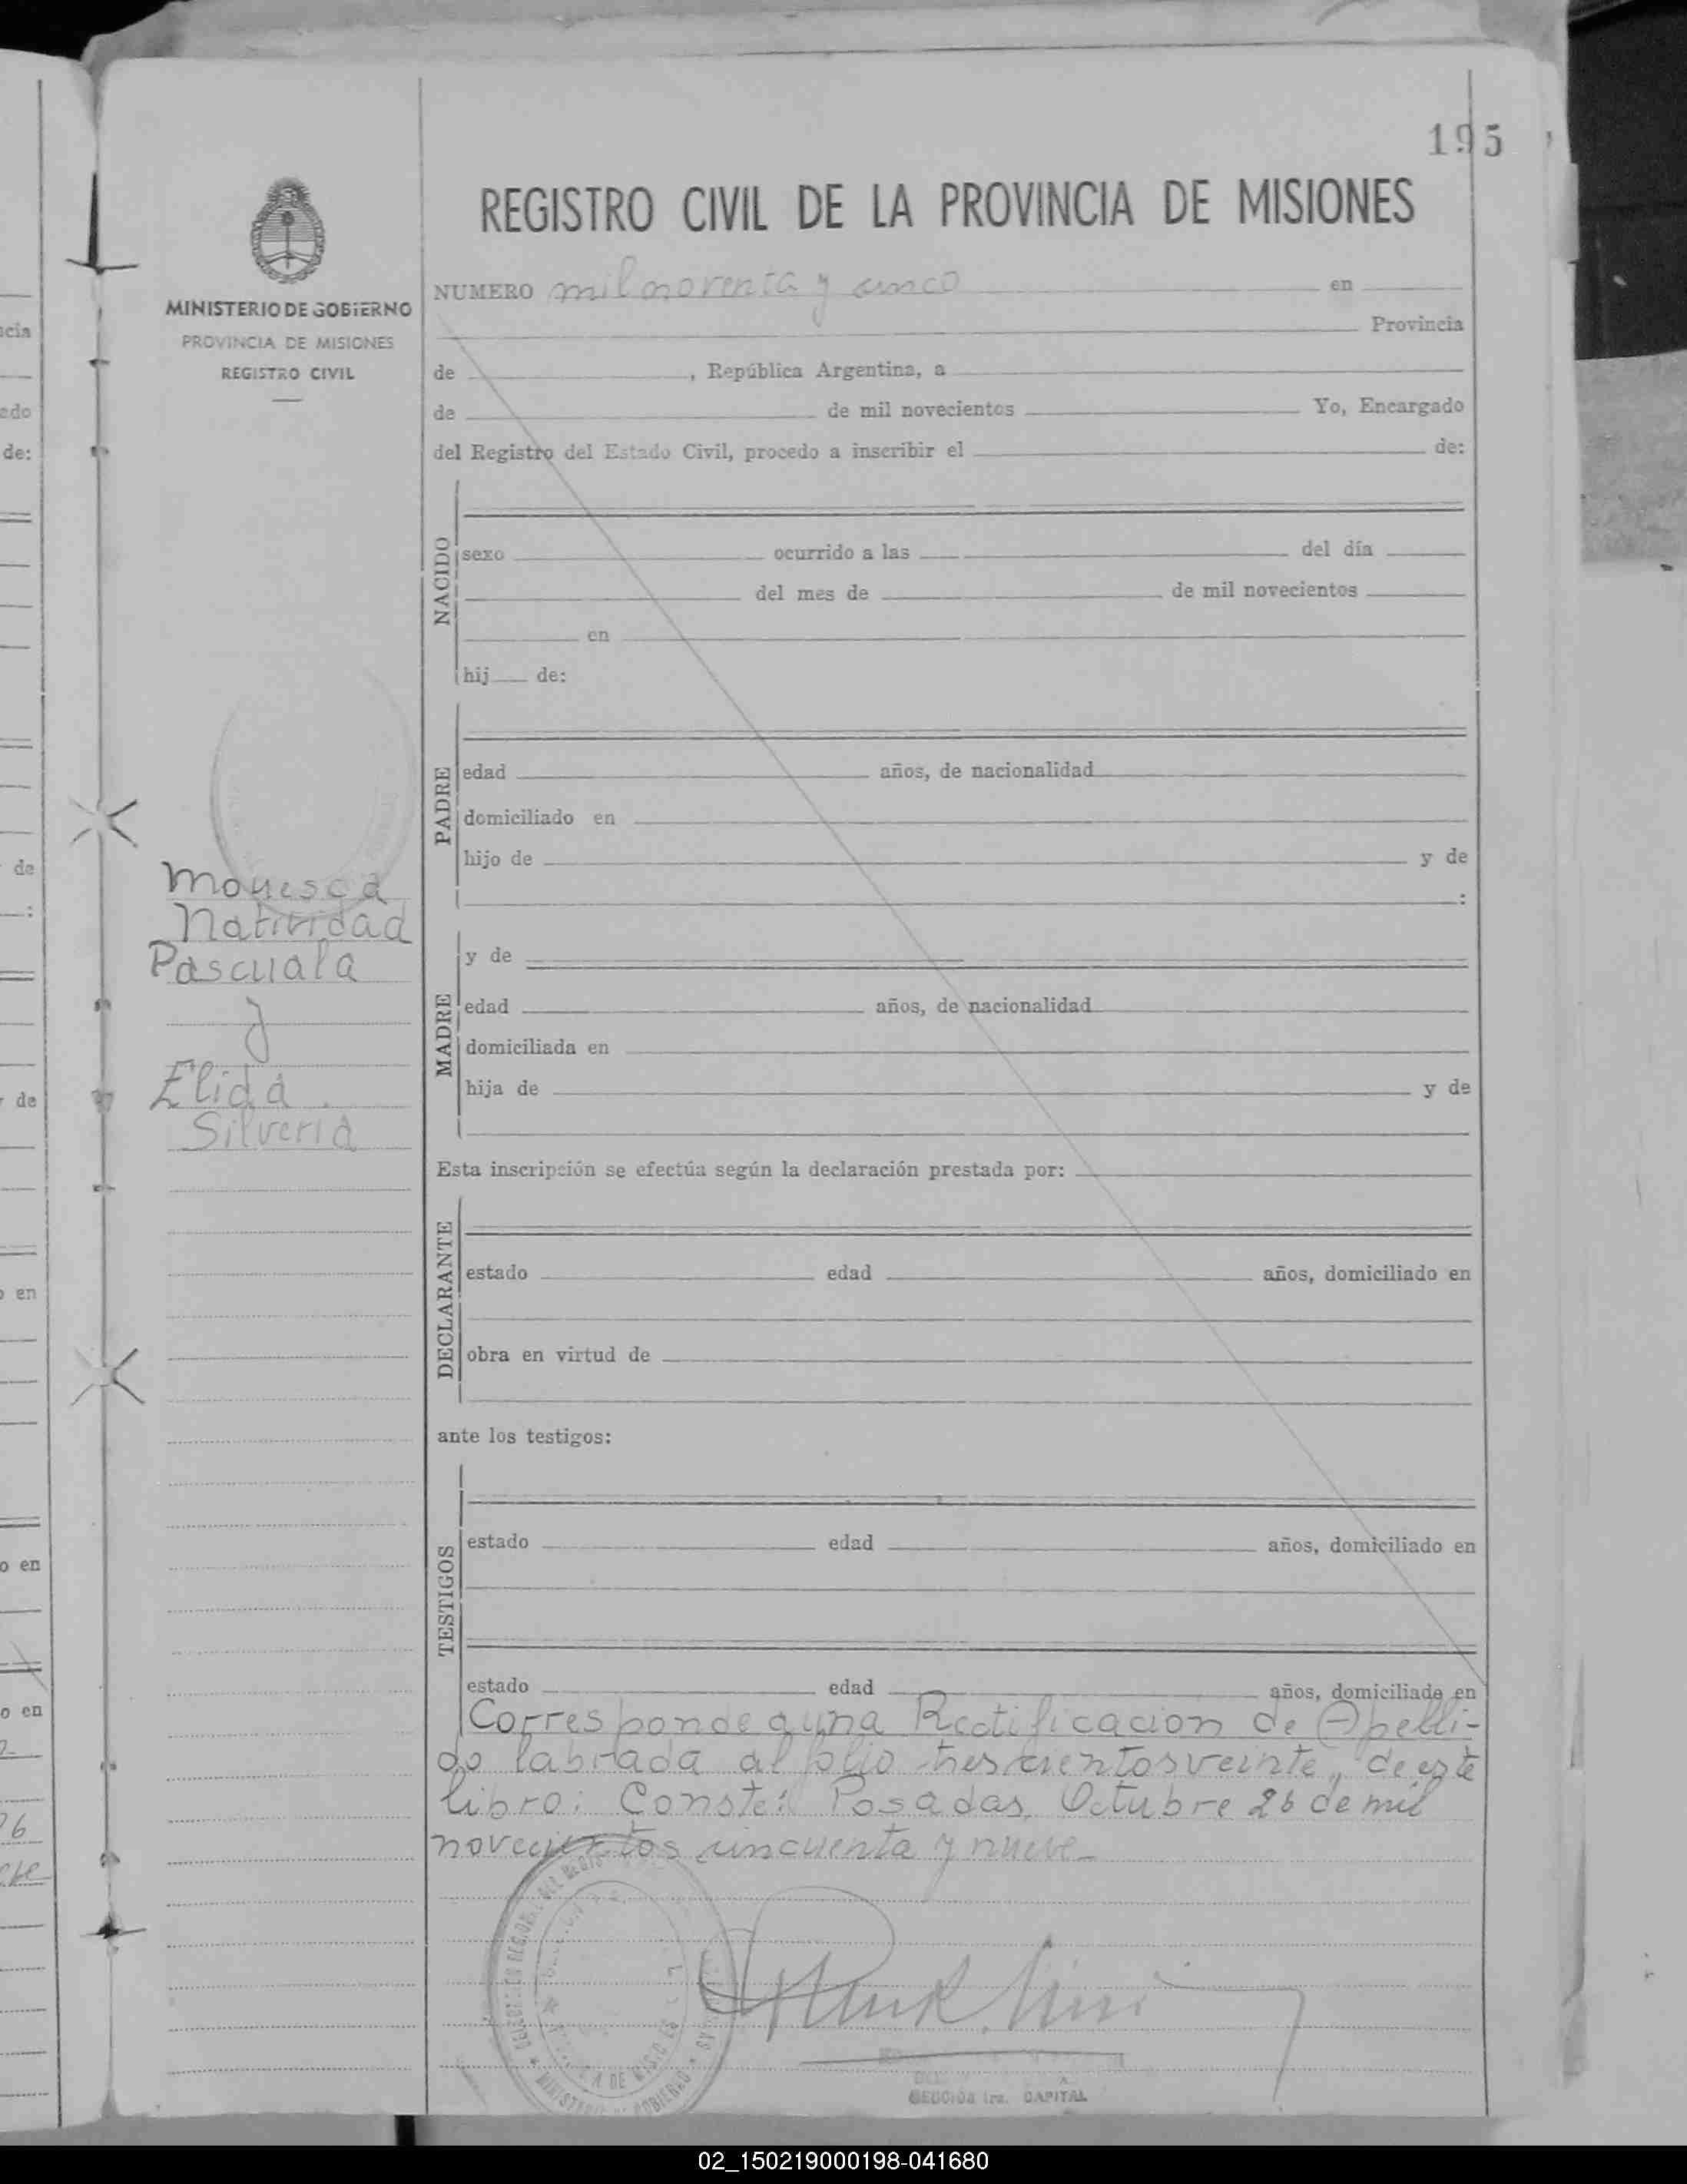 195
REGISTRO CIVIL DE LA PROVINCIA DE MISIONES
MINISTERIO DE GOBIERNO
PROVINCIA DE MISIONES
REGISTRO CIVIL
NUMERO mil noventa y cinco en
Provincia
de , República Argentina, a
de de mil novecientos Yo, Encargado
del Registro del Estado Civil, procedo a inscribir el de:
NACIDO
sexo ocurrido a las del día
del mes de de mil novecientos
en
hij de:
PADRE
edad años, de nacionalidad
domiciliado en
hijo de y de
:
Natividad
Pascuala
y
Elida
Silveria
MADRE
y de
edad años, de nacionalidad
domiciliada en
hija de y de
Esta inscripción se efectúa según la declaración prestada por:
DECLARANTE
estado edad años, domiciliado en
obra en virtud de
ante los testigos:
TESTIGOS
estado edad años, domiciliado en
estado edad años, domiciliado en
Corresponde a una Rectificacion de Apelli-
do labrada al folio trescientos veinte, de este
libro; Conste: Posadas, Octubre 26 de mil
novecientos cincuenta y nueve
SECCIÓN 1ra. CAPITAL
02_150219000198-041680